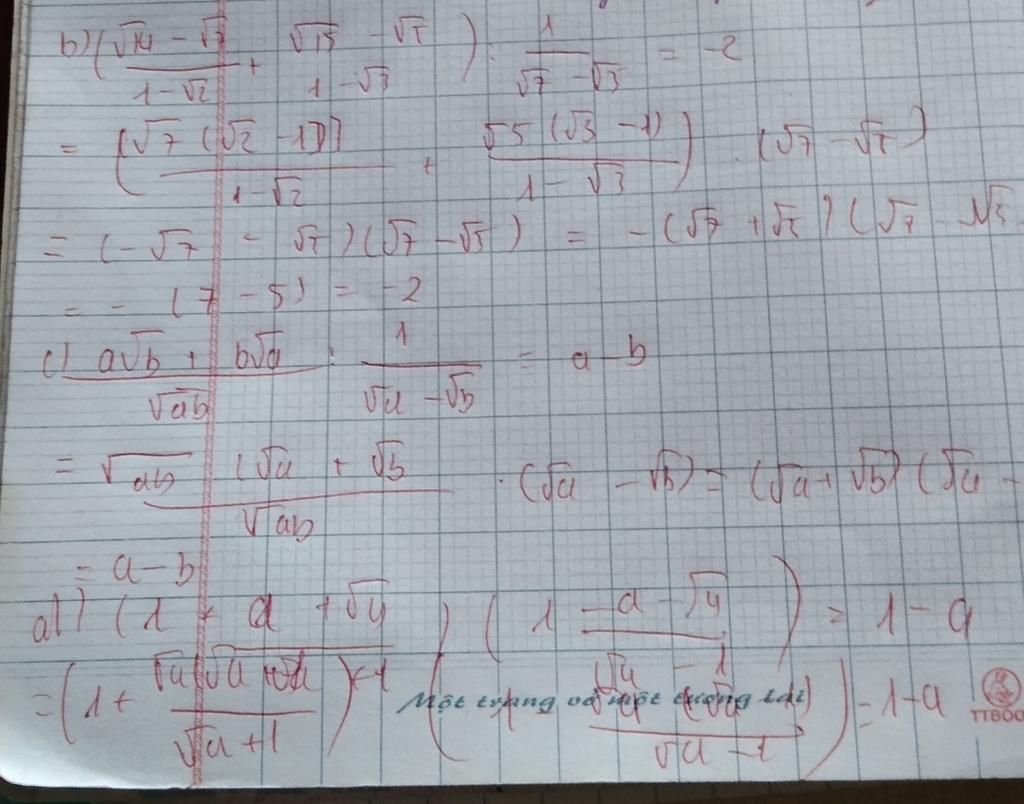 b) (√14 - √7 / 1 - √2 + √15 - √5 / 1 - √3) : 1 / √7 - √5 = -2
= (√7 (√2 - 1) / 1 - √2 + √5 (√3 - 1) / 1 - √3) . (√7 - √5)
= (-√7 - √5) (√7 - √5) = - (√7 + √5) (√7 - √5
= - (7 - 5) = -2
c) a√b + b√a / √ab : 1 / √a - √b = a - b
= √ab (√a + √b / √ab . (√a - √b) = (√a + √b) (√a -
= a - b
d) (1 + a + √a / ) (1 - a - √a / √a - 1) = 1 - a
= (1 + √a (√a + 1) / √a + 1) (1 - √a (√a - 1) / √a - 1) = 1 - a
Một trang vở một tương lai
TTBOO